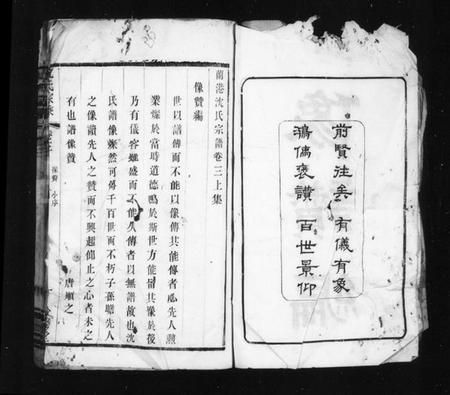 前賢往矣 有儀有象
鴻儒褒讚 百世景仰
蘭港沈氏宗譜卷三上集
像贊編
世以譜傳而不能以像傳其能傳者必先人勲
業燦於當時道德鳴於斯世方能留其像於後
乃有儀容雖盛而不能久傳者以無譜故也沈
氏譜像燦然可傳千百世而不朽子孫瞻先人
之像讀先人之贊而不興起仰止之心者未之
有也譜像贊
唐順之
沈氏宗譜
像贊 小序